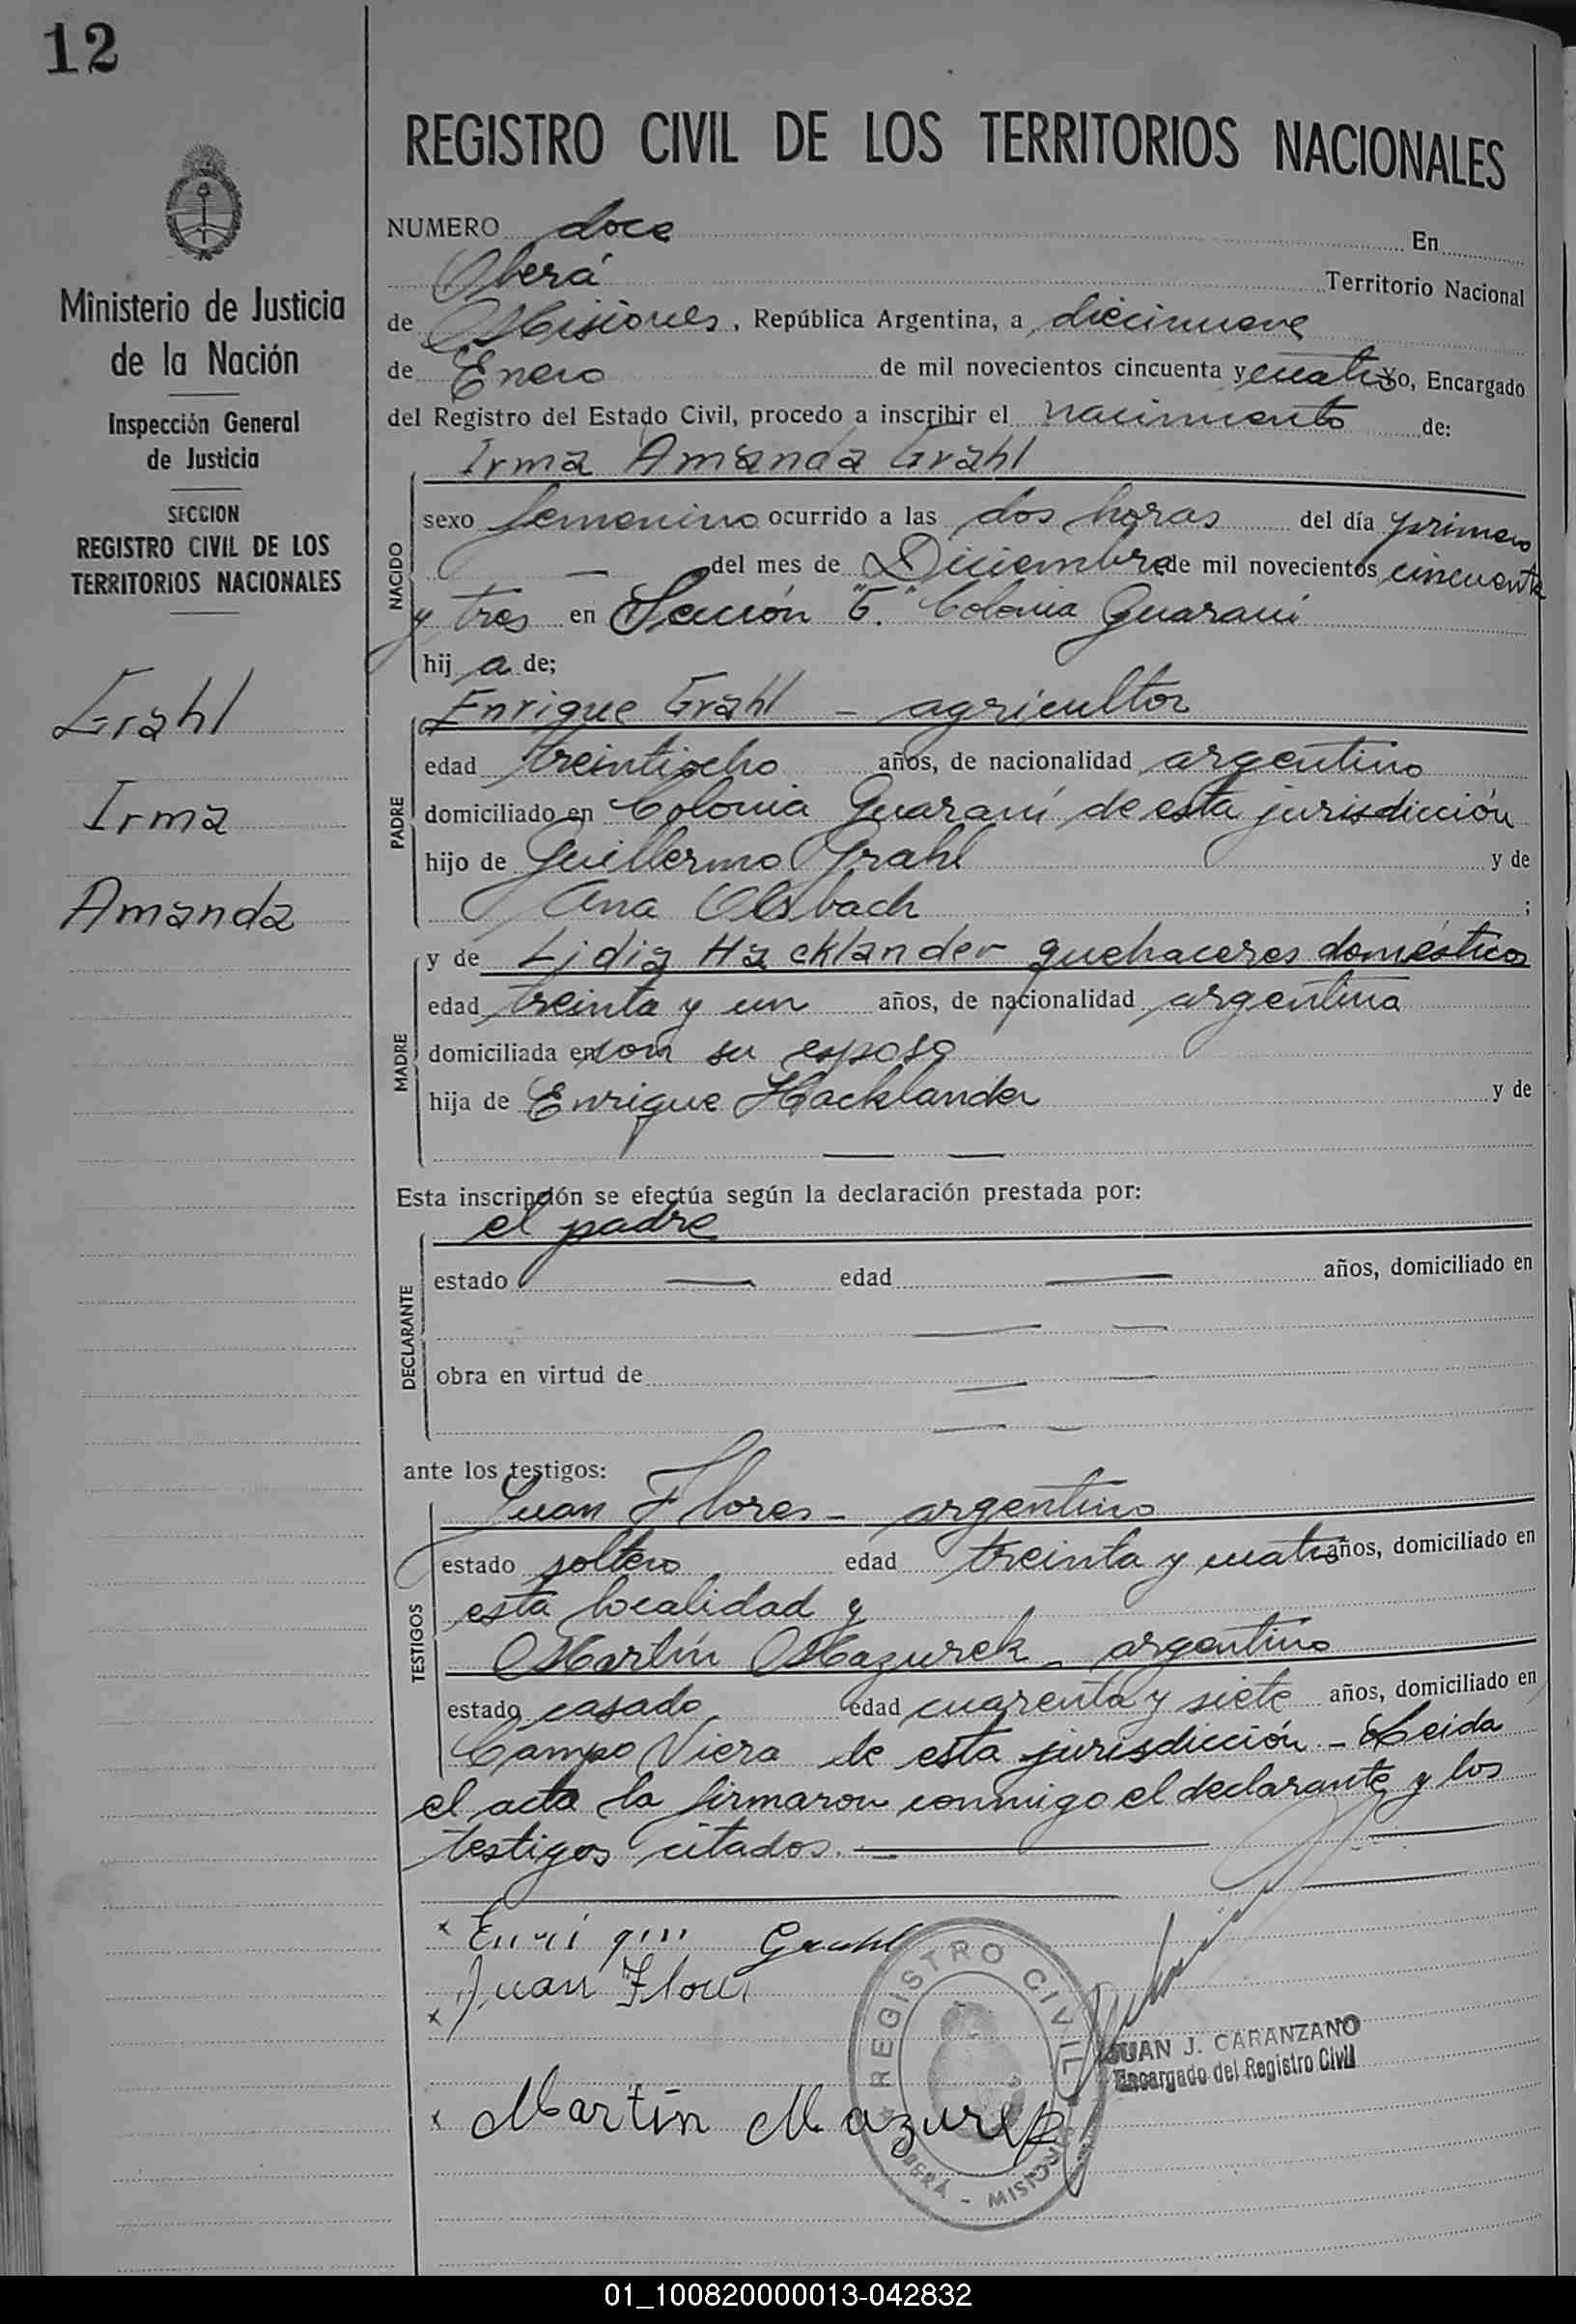 12
REGISTRO CIVIL DE LOS TERRITORIOS NACIONALES
Ministerio de Justicia
de la Nación
Inspección General
de Justicia
SECCION
REGISTRO CIVIL DE LOS
TERRITORIOS NACIONALES
Grahl
Irma
Amanda
NUMERO doce En
Oberá Territorio Nacional
de Misiones, República Argentina, a diecinueve
de Enero de mil novecientos cincuenta y cuatro yo, Encargado
del Registro del Estado Civil, procedo a inscribir el nacimiento de:
Irma Amanda Grahl
NACIDO
sexo femenino ocurrido a las dos horas del día primero
— del mes de Diciembre de mil novecientos cincuenta
y tres en Sección "6." Colonia Guaraní
hij a de;
Enrique Grahl - agricultor
PADRE
edad treintiocho años, de nacionalidad argentino
domiciliado en Colonia Guaraní de esta jurisdicción
hijo de Guillermo Grahl y de
Ana Olsbach ;
y de Lidia Hacklander quehaceres domésticos
MADRE
edad treinta y un años, de nacionalidad argentina
domiciliada en con su esposo
hija de Enrique Hacklander y de
— —
Esta inscripción se efectúa según la declaración prestada por:
el padre
DECLARANTE
estado — edad — años, domiciliado en
— —
obra en virtud de — —
— —
ante los testigos:
Juan Flores - argentino
TESTIGOS
estado soltero edad treinta y cuatro años, domiciliado en
esta localidad y
Martín Mazurek - argentino
estado casado edad cuarenta y siete años, domiciliado en
Campo Viera de esta jurisdicción - Leida
el acta la firmaron conmigo el declarante y los
testigos citados. —
x Enrique Grahl
x Juan Flores
x Martín Mazurek
REGISTRO CIVIL
OBERÁ - MISIONES
JUAN J. CARANZANO
Encargado del Registro Civil
01_100820000013-042832